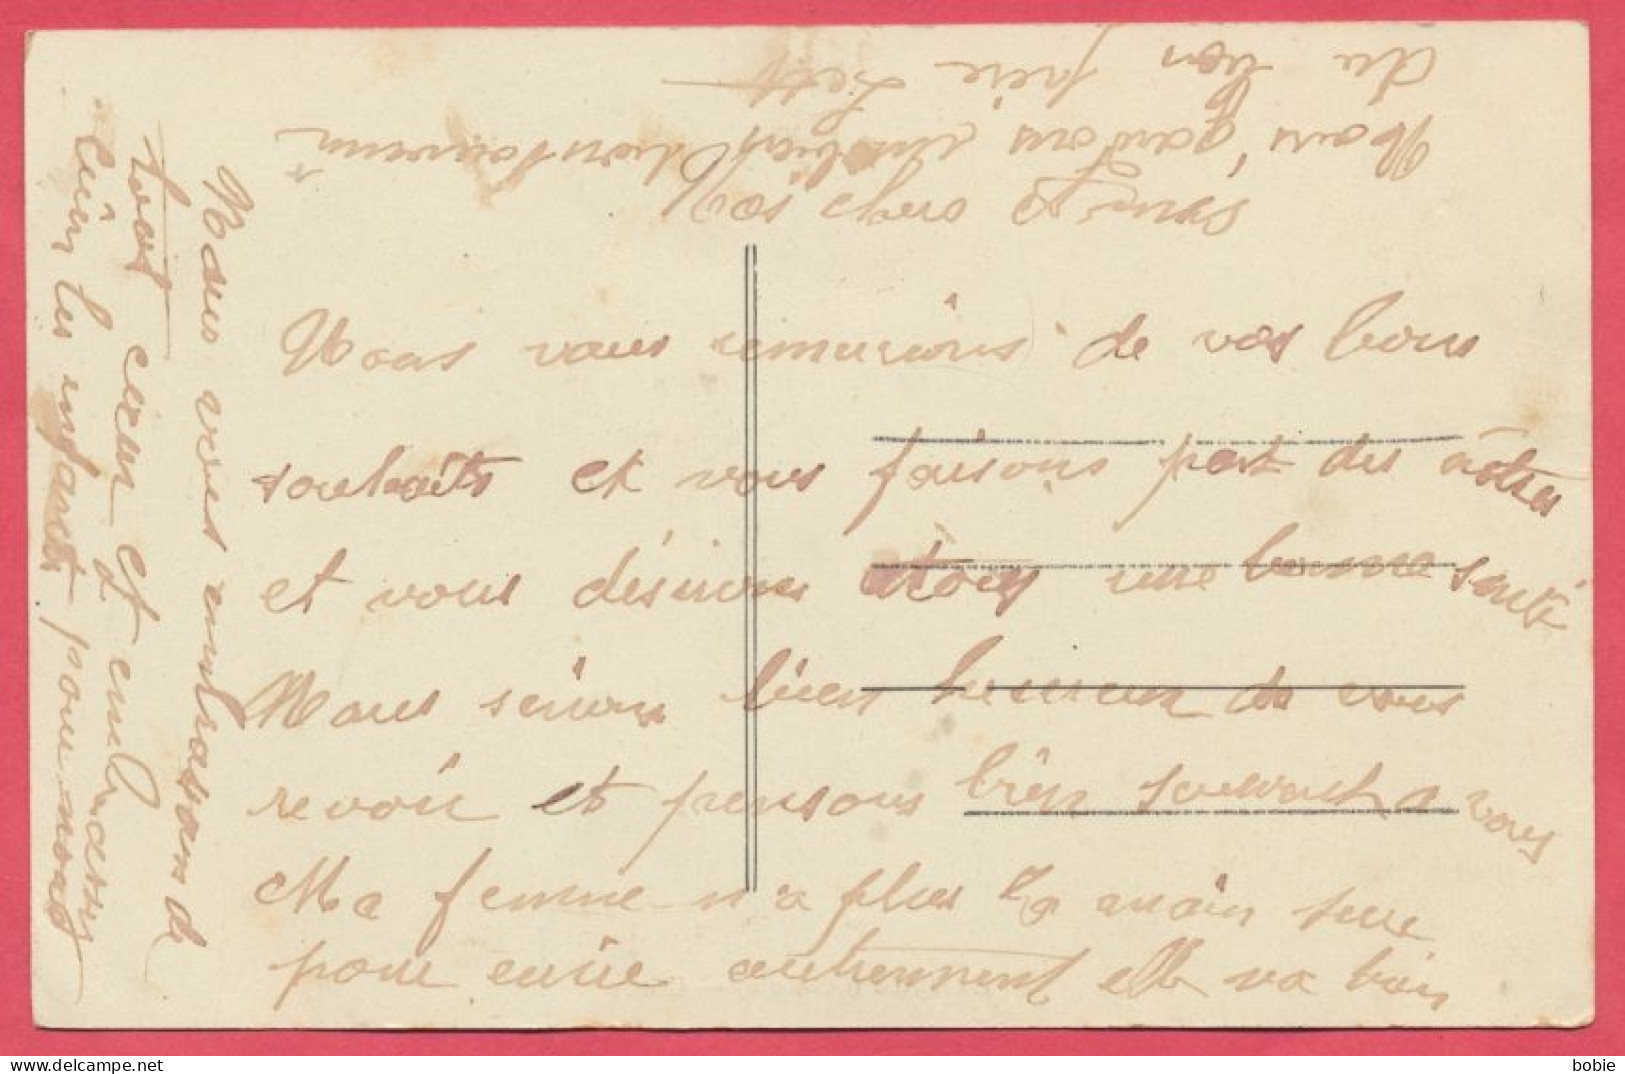 Nous vous remercions de vos bons
souhaits et vous faisons part des nôtres
et vous désirons une bonne santé
Nous serions bien heureux de vous
revoir et pensons bien souvent a vous
Ma femme n'a plus la main sure
pour ecrire autrement elle va bien
Nous vous embrassons de
tout cœur et embrassez
bien les enfants pour nous
Nos chers
Nous gardons bien souvenir
du bon père
bobie